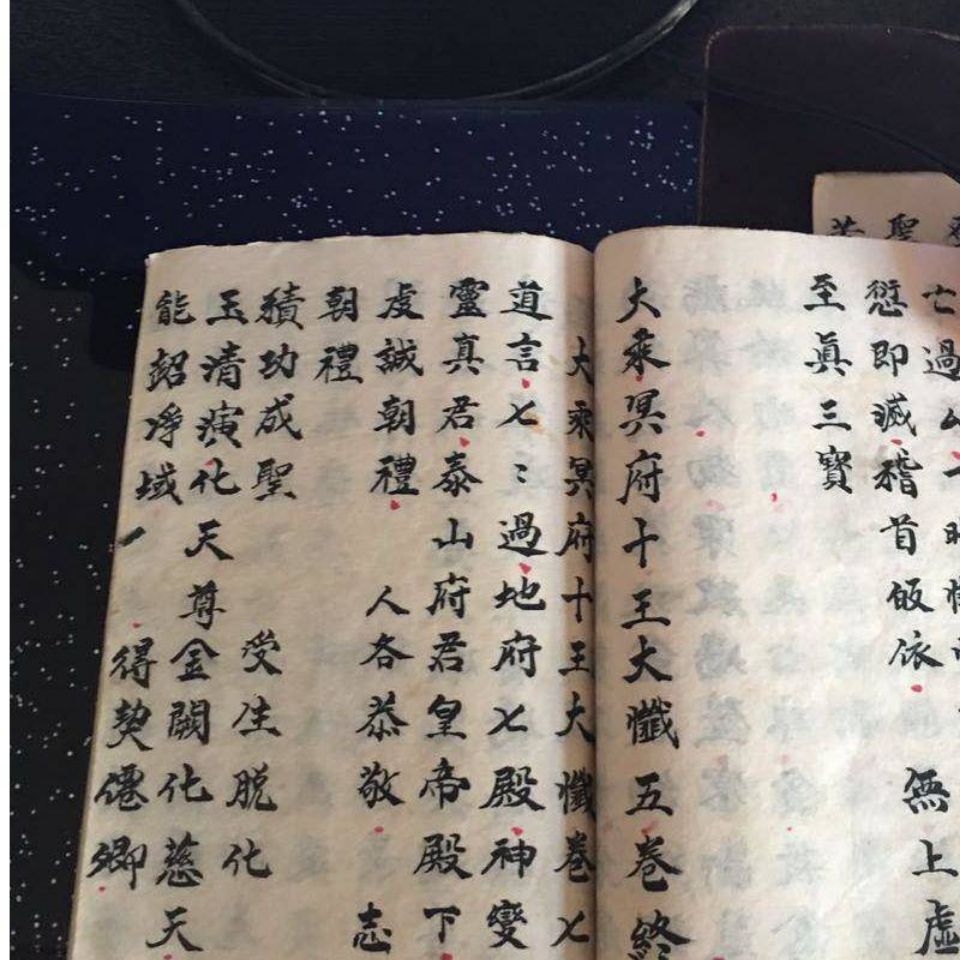 聖
亡過
愆即滅稽首皈依 無上虛
至眞三寶
大乘冥府十王大懺五卷終
大乘冥府十王大懺卷七
道言七〻過地府七殿神變
靈真君泰山府君皇帝殿下
虔誠朝禮 人各恭敬 志
朝禮
積功成聖 受生脱化
玉清演化天尊金闕化慈天
能超凈域一 得契僊鄉